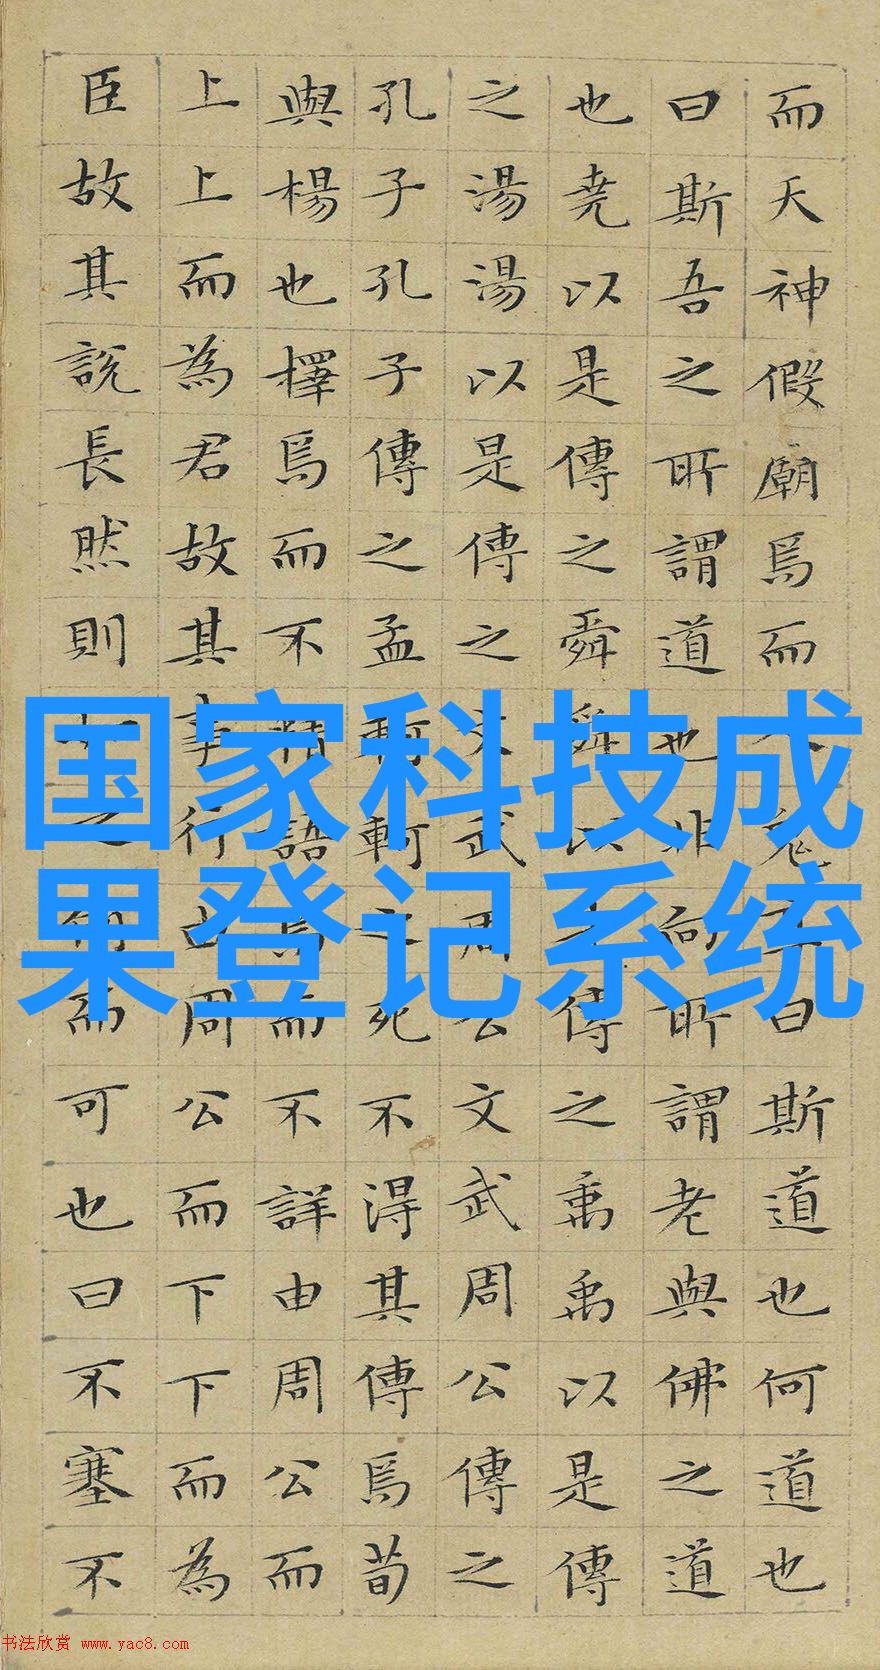 而天神假廟焉而鬼曰斯道也何道也
曰斯吾之所謂道也非向所謂老與佛之道
也堯以是傳之舜舜以傳之禹禹以是傳
之湯湯以是傳之文武周公文武周公傳之
孔子孔子傳之孟軻軻之死不得其傳焉荀
與楊也擇焉而不精語焉而不詳由周公而
上上而為君故其事行由周公而下下而為
臣故其說長然則之而可也曰不塞不
国家科技成
果登记系统
书法欣赏 www.yac8.com